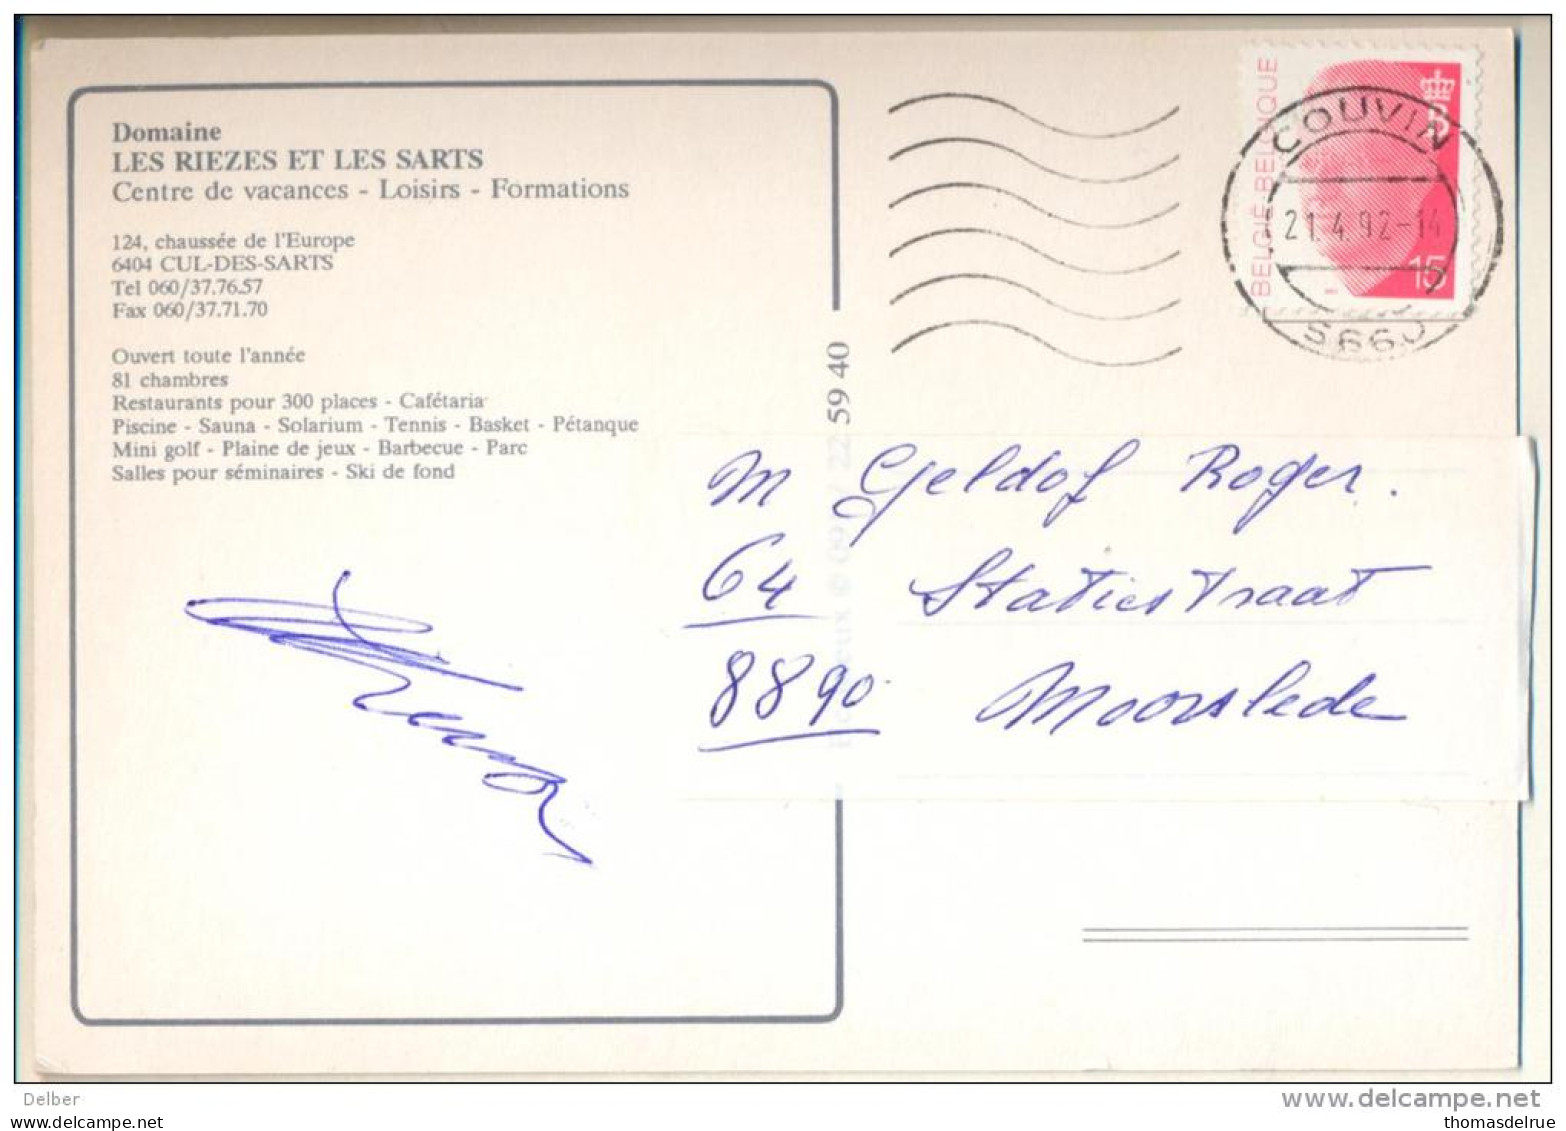 Domaine
LES RIEZES ET LES SARTS
Centre de vacances - Loisirs - Formations
124, chaussée de l'Europe
6404 CUL-DES-SARTS
Tel 060/37.76.57
Fax 060/37.71.70
Ouvert toute l'année
81 chambres
Restaurants pour 300 places - Cafétaria
Piscine - Sauna - Solarium - Tennis - Basket - Pétanque
Mini golf - Plaine de jeux - Barbecue - Parc
Salles pour séminaires - Ski de fond
22 59 40
BELGIË-BELGIQUE
15
COUVIN
21.4.92-14
5660
M Geldof Roger.
64 Statiestraat
8890 Moorslede
Delber
www.delcampe.net
www.delcampe.net
thomasdelrue